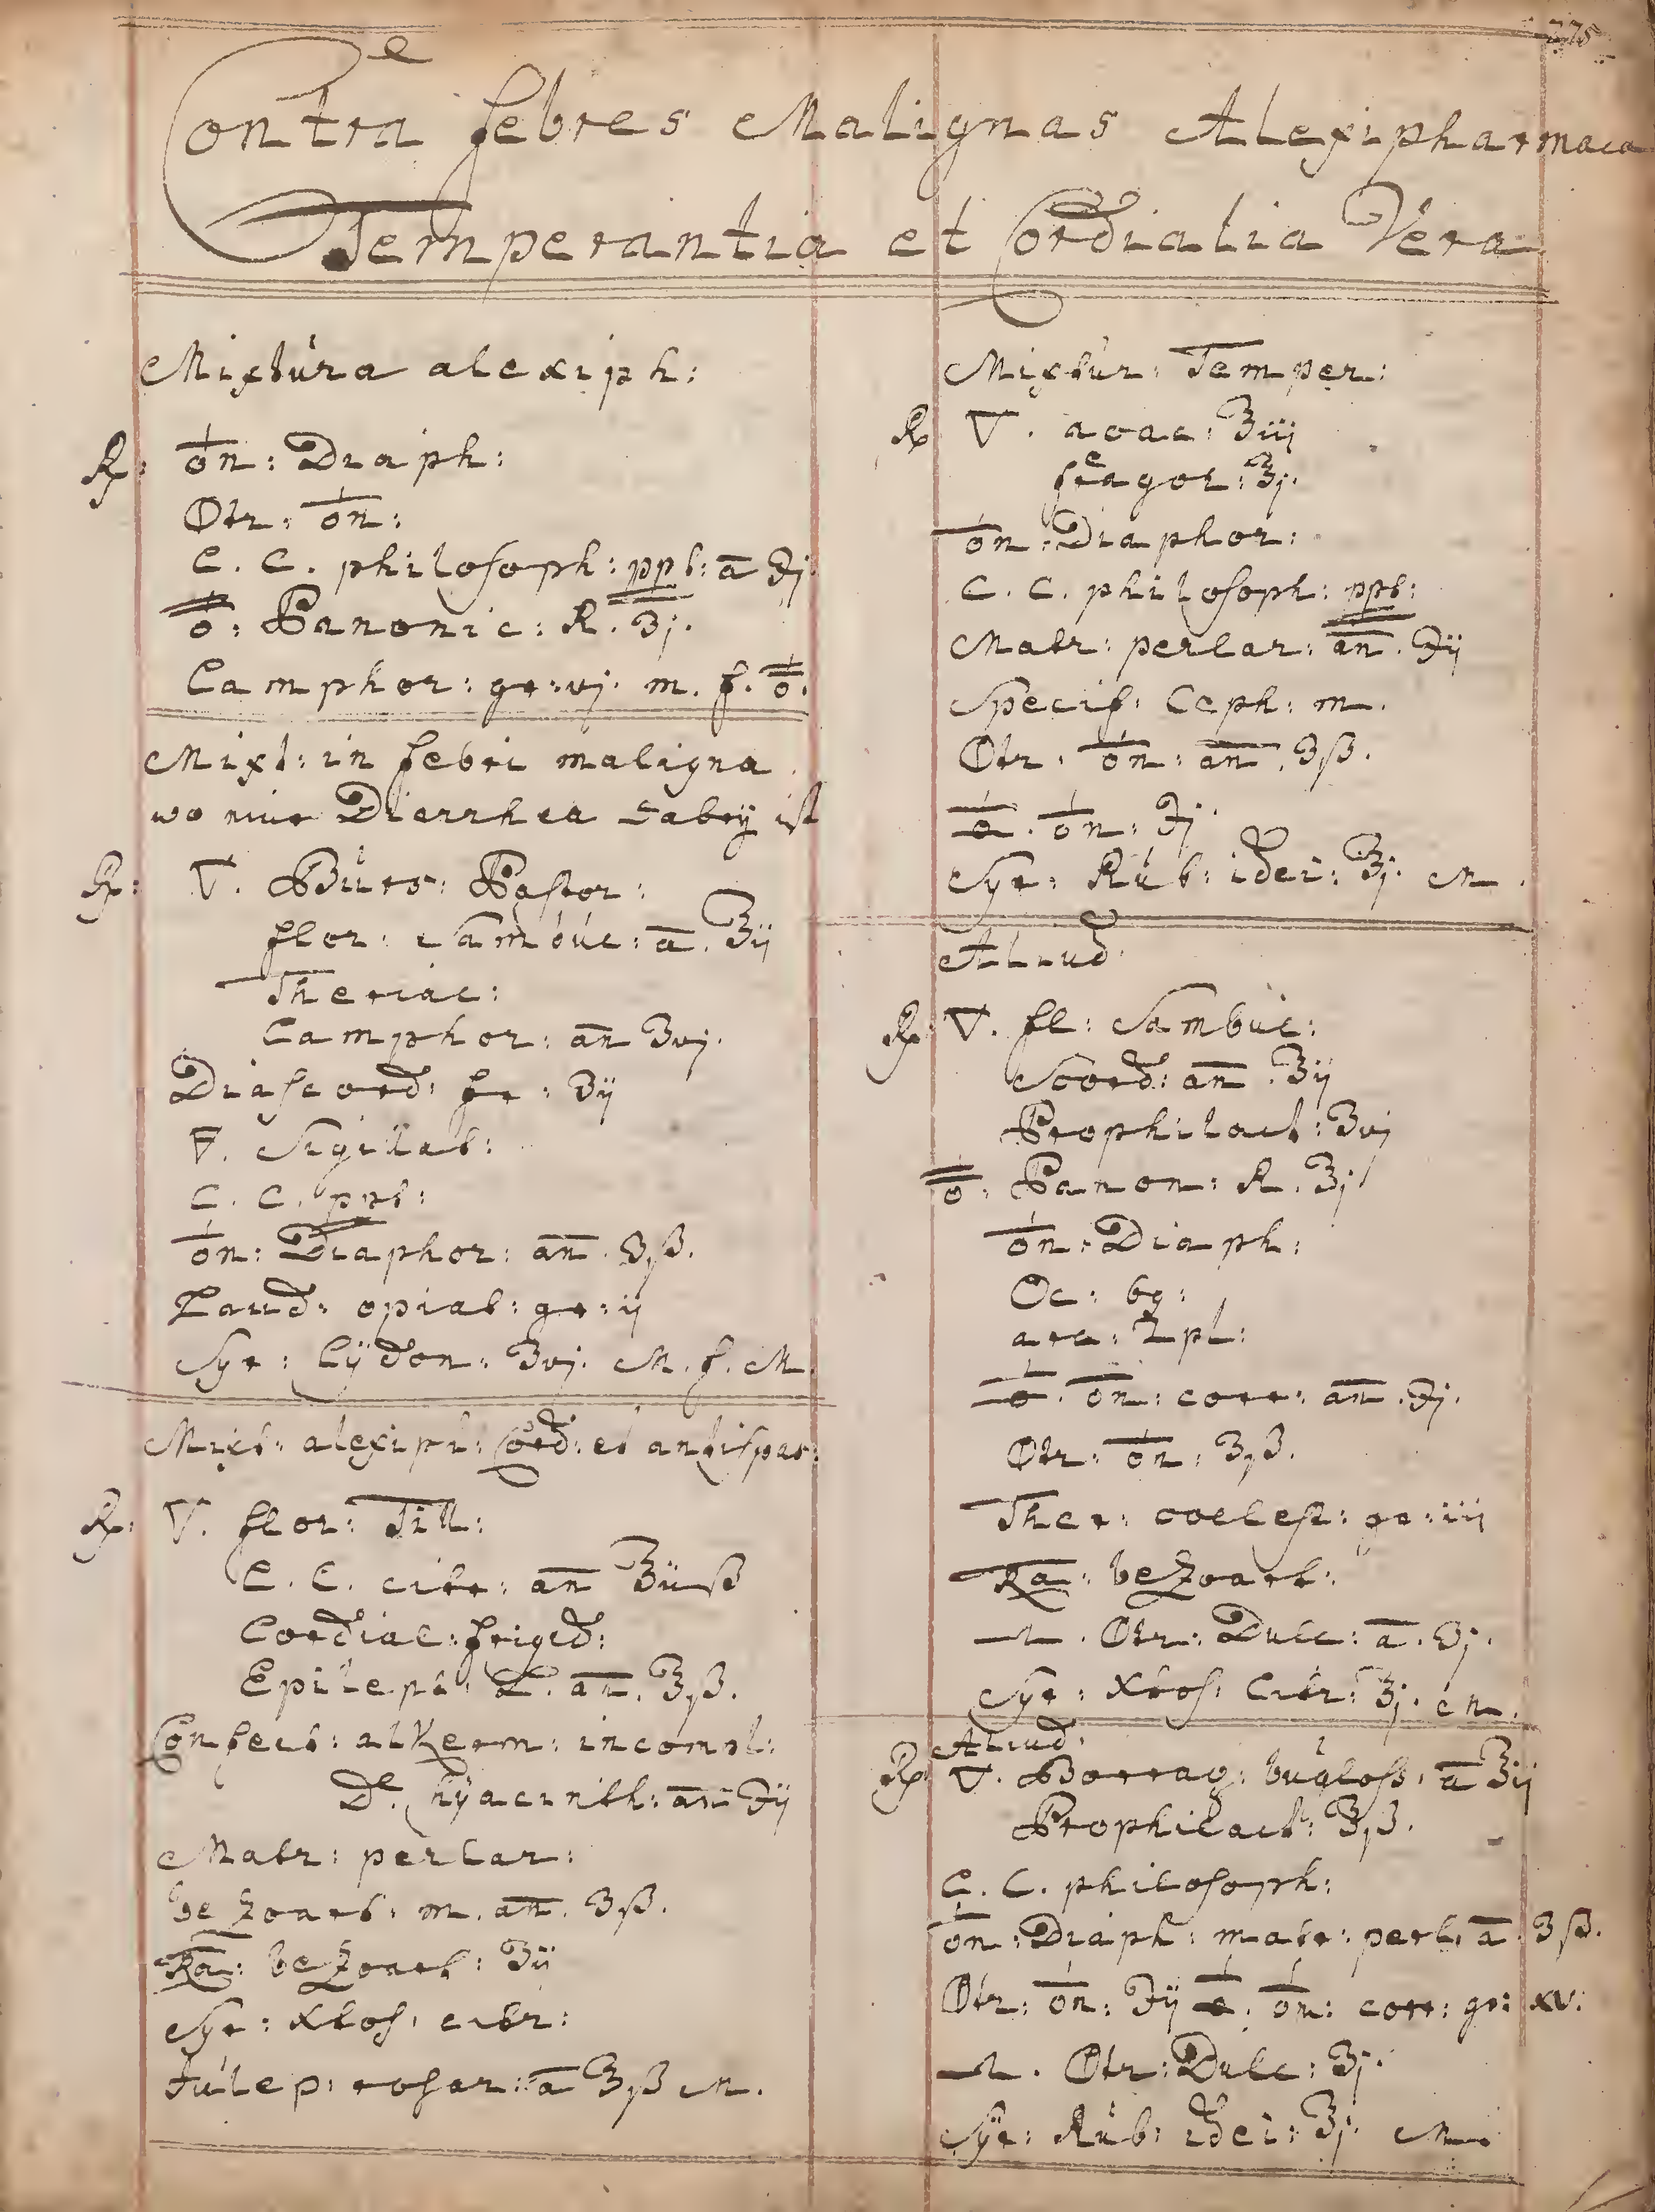 275
Contra febres Malignas Alexipharmaca
Temperantia et Cordialia Vera
Mixtúra alexiph:
℞: ♁n: Diaph:
⦶tr: ♁n:
C. C. philosoph: ppt: a ℈j.
Panonic: R. ʒj.
Camphor: gr: vj. m. f.
Mixt: in febri maligna
wo eine Dierrhea dabeÿ ist
℞: ▽. Búrs: Pastor:
flor: Sambúc: a. ℥ij
Theriac:
Camphor: an ʒvj.
Diascord: fr: ʒij
Sigillat:
C. C. ppt:
♁n: Diaphor: an. ʒß.
Laud: opiat: gr: ij
Syr: Cÿdon: ʒvj. M. f. M.
Mixt: alexiph: Cord: et antispas:
℞: ▽. flor: Till:
C. C. citr: an ℥iiß
Cordial: frigid:
Epilept: L. an. ℥ß.
Confect: alKerm: incompl:
De hÿacinth: an ℈ij
Matr: perlar:
beZoart: m. an. ʒß.
beZoart: ʒij
Syr: Xtos: citr:
Júlep: rosar: a ℥ß M.
Mixtúr: Temper:
℞ ▽. acac: ℥iij
fragor: ℥j.
♁n: Diaphor:
C. C. philosoph: ppt:
Matr: perlar: an. ℈ij
Specif: Ceph: m.
⦶tr. ♁n: an. ʒß.
♁n: ℈j.
Syr: Rúb: idei: ℥j. M.
Aliud.
℞: ▽. fl: Sambúc:
Scord: an. ℥ij
Prophilact: ʒvj
Panon: R. ʒj
♁n: Diaph:
Oc:
♁n: corr: an. ℈j.
⦶tr: ♁n: ʒß.
Ther: coelest: gr: iij
beZoart:
⦶tr: Dulc: a. ʒj.
Syr: Xtos: Citr: ℥j. M.
Aliud.
℞: ▽. Borrag: búgloss: a ℥ij
Prophilact: ℥ß.
C. C. philosoph:
♁n: Diaph: matr: perl: a ʒß.
⦶tr: ♁n: ℈ij ♁n: corr: gr: xv:
⦶tr: Dulc: ʒj.
Sÿr: Rúb: idei: ℥j. M.